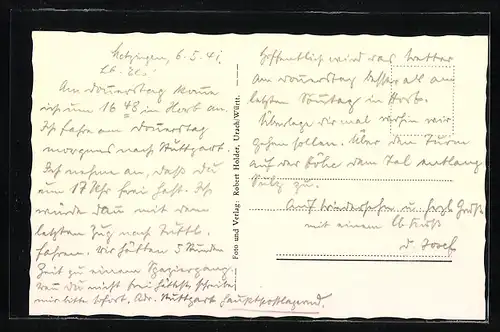 Metzingen, 6.5.41.
Lb. Els!
Am Donnerstag komme
ich um 16 48 in Horb an.
Ich fahre am Donnerstag
morgens nach Stuttgart.
Ich nehme an, dass du
um 17 Uhr frei hast. Ich
würde dan mit dem
letzten Zug nach Tuttl.
fahren. Wir hätten 5 Stunden
Zeit zu einem Spaziergang.
Wen du nicht frei hättest, schreibe
mir bitte sofort. Adr. Stuttgart Hauptpostlagernd.
Foto und Verlag: Robert Holder, Urach/Württ.
Hoffentlich wird das Wetter
am Donnerstag besser als am
letzten Sonntag in Horb.
Überlege dir mal wohin wir
gehen sollen. Über den Turm
auf der Höhe dem Tal entlang
Sulz zu.
Auf Wiedersehen u. herzl. Grüße
mit einem lb. Kuß
d. Josef